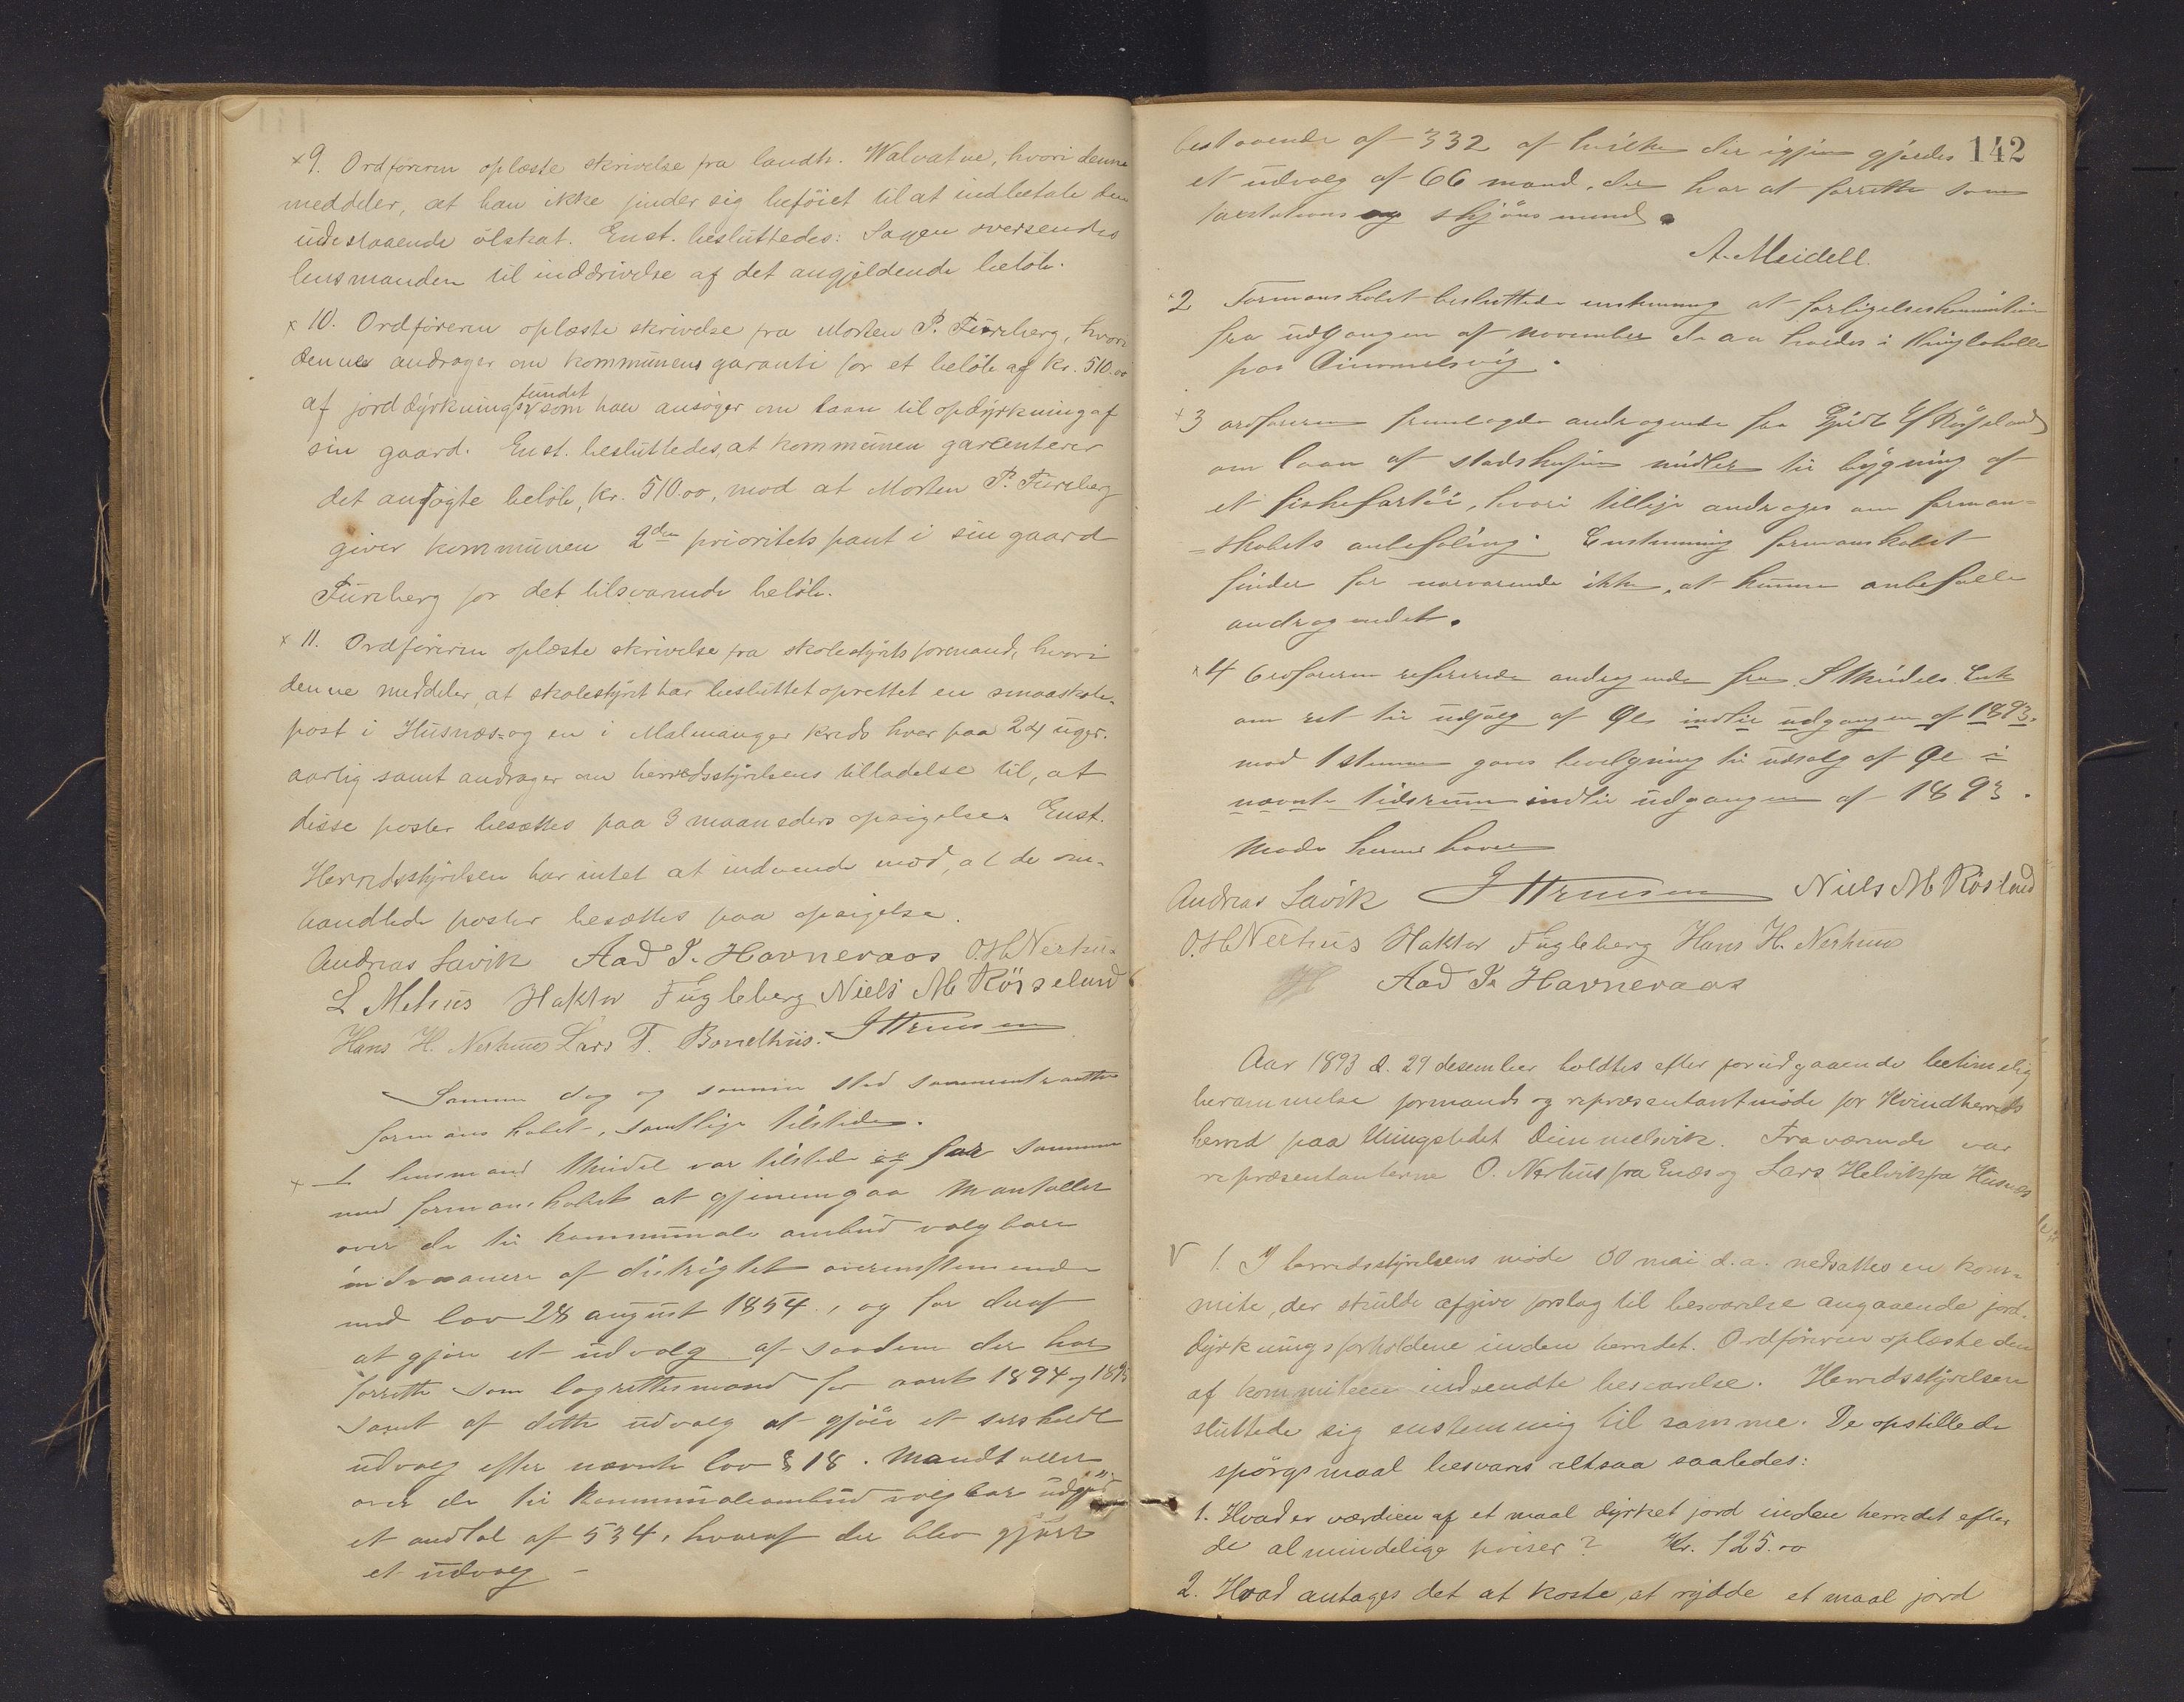 x 9. Ordføreren oplæste skrivelse fra landh. Walvatne, hvori denne
meddeler, at han ikke finder sig beføiet til at indbetale den
udestaaende ølskat. Enst. besluttedes: Sagen oversendes
lensmanden til inddrivelse af det angjeldende beløb.
x 10. Ordføreren oplæste skrivelse fra Morten P. Fureberg, hvori
denne andrager om kommunens garanti for et beløb af kr. 510.00
af jorddyrkningsfundet som han ansøger om laan til opdyrkning af
sin gaard. Enst. besluttedes, at kommunen garenterer
det ansøgte beløb, kr. 510.00, mod at Morten P. Fureberg
giver kommunen 2den prioritets pant i sin gaard
Fureberg for det tilsvarende beløb.
x 11. Ordføreren oplæste skrivelse fra skolestyrets formand, hvori
denne meddeler, at skolestyret har besluttet oprettet en smaaskole-
post i Husnæs- og en i Malmanger kreds hver paa 24 uger.
aarlig samt andrager om herredsstyrelsens tilladelse til, at
disse poster besættes paa 3 maaneders opsigelse. Enst.
Herredsstyrelsen har intet at indvende mod, at de om-
handlede poster besættes paa opsigelse.
Andreas Savik Aad T. Havneraas O.H. Nerhus
L Mehus Haktor Fugleberg Niels M Røsselund
Hans H. Nerhus Lars T. Bondhus.
Samme dag og samme sted sammentraadte
formanskabet, samtlige tilstede.
x 1 lensmand Meidel var tilstede og for sammen
med formanskabet at gjenemgaa Mantallet
over de til kommunale ombud valgbare
indvaanere af distrigtet overensstemmende
med lov 28 august 1854, og for deraf
at gjøre et udvalg af saadene der har
forrette som lagrettesmænd for aaret 1894 og 1895
samt af dette udvalg at gjøre et serskeldt
udvalg efter nævnte lov § 18. Mandtallet
over de til Kommunaleombud valgbare udgjør
et andtal af 534, hvoraf der blev gjort
et udvalg -
142
bestaaende af 332 af hvilke der igjen gjordes
et udvalg af 66 mænd, der har at forrette som
taxstations og skjøns mænd.
A. Meidell.
x 2 Formanskabet besluttede enstemmig at forligelseskommission
fra udgangen af november d. aa holdes i thinglokalle
paa Dimmelsvig.
x 3 ordføreren fremlagde andragende fra
om laan af stadskassens midler til bygning af
et fiskefartøi, hvori tillige andrages om forman-
=skabets anbefaling. Enstemmig formanskabet
finder for nærværende ikke, at kunne anbefalle
andragendet.
x 4 Ordføreren refererede andragende fra
om ret til udsalg af Øl indtil udgangen af 1893.
mod 1 stemme gaves bevilgning til udsalg af Øl i
nævnte tidsrum indtil udgangen af 1893.
Møde
Andreas Savik Niels M Røslund
O.H Nerhus Haktor Fugleberg Hans H. Nerhus
Aad T. Havneraas
Aar 1893 d. 29 desember holdtes efter forudgaaende betimelig
berammelse formands og repræsentantmøde for Kvindherreds
herred paa thingstedet Dimmelsvik. Fraværende var
repræsentanterne O. Nerhus fra Enæs og Lars Helvik fra Husnæs
V 1. I herredsstyrelsens møde 30 mai d.a. nedsattes en kom-
mite, der skulde afgive forslag til besvarelse angaaende jord-
dyrkningsforholdene inden herredet. Ordføreren oplæste den
af kommiteen indsendte besvarelse. Herredsstyrelsen
sluttede sig enstemmig til samme. De opstillede
spørgsmaal besvares altsaa saaledes:
1. Hvad er værdien af et maal dyrket jord inden herredet efter
de almindelige priser? Kr. 125.00
2. Hvad antages det at koste, at rydde et maal jord